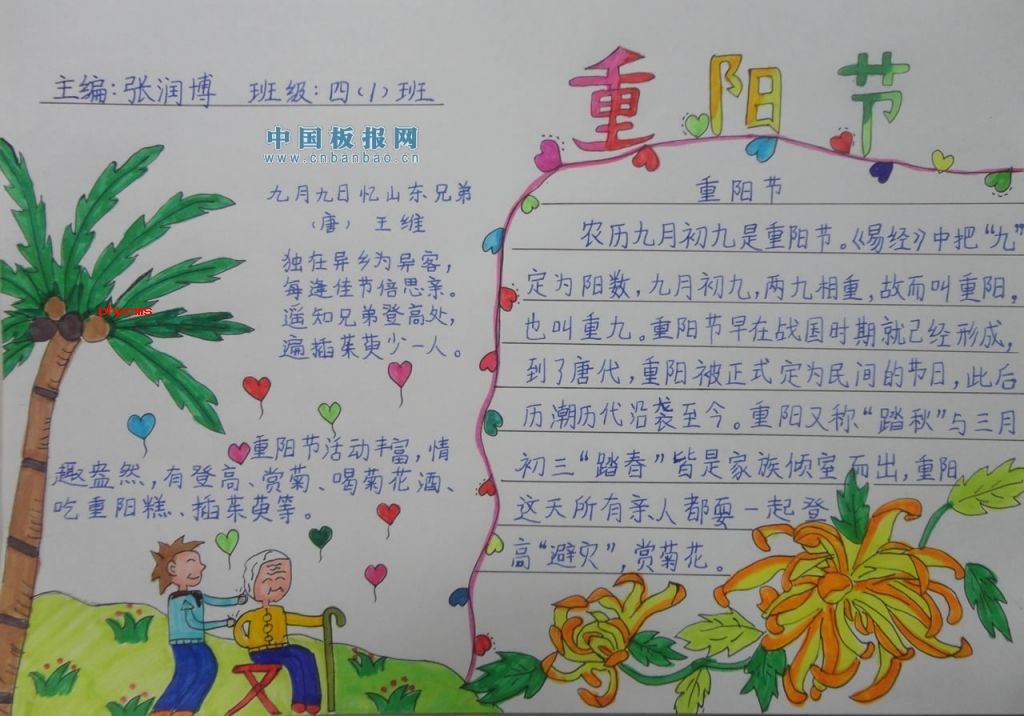 主编：张润博 班级：四（1）班
中国板报网
www.cnbanbao.cn
九月九日忆山东兄弟
（唐） 王维
独在异乡为异客，
每逢佳节倍思亲。
遥知兄弟登高处，
遍插茱萸少一人。
phpcms
重阳节活动丰富，情
趣盎然，有登高、赏菊、喝菊花酒、
吃重阳糕、插茱萸等。
重阳节
重阳节
农历九月初九是重阳节。《易经》中把“九”
定为阳数，九月初九，两九相重，故而叫重阳，
也叫重九。重阳节早在战国时期就已经形成，
到了唐代，重阳被正式定为民间的节日，此后
历潮历代沿袭至今。重阳又称“踏秋”与三月
初三“踏春”皆是家族倾室而出，重阳
这天所有亲人都要一起登
高“避灾”，赏菊花。